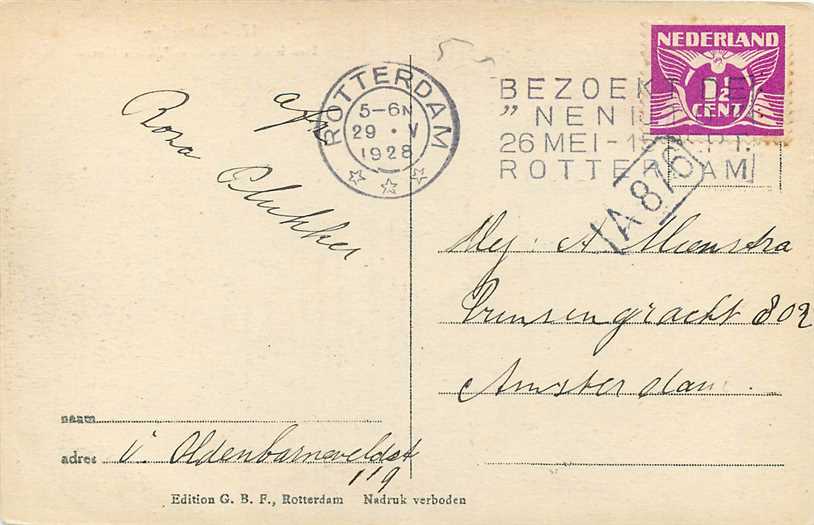 NEDERLAND
1½
CENT
ROTTERDAM
5-6N
29 · V
1928
BEZOEKT DE
"NENIJTO"
26 MEI-15 SEPT.
ROTTERDAM
A876
afz
Rosa Plukker
Mej. A Meenstra
Prinsengracht 802
Amsterdam.
naam
adres v. Oldenbarneveldst
119
Edition G. B. F., Rotterdam Nadruk verboden